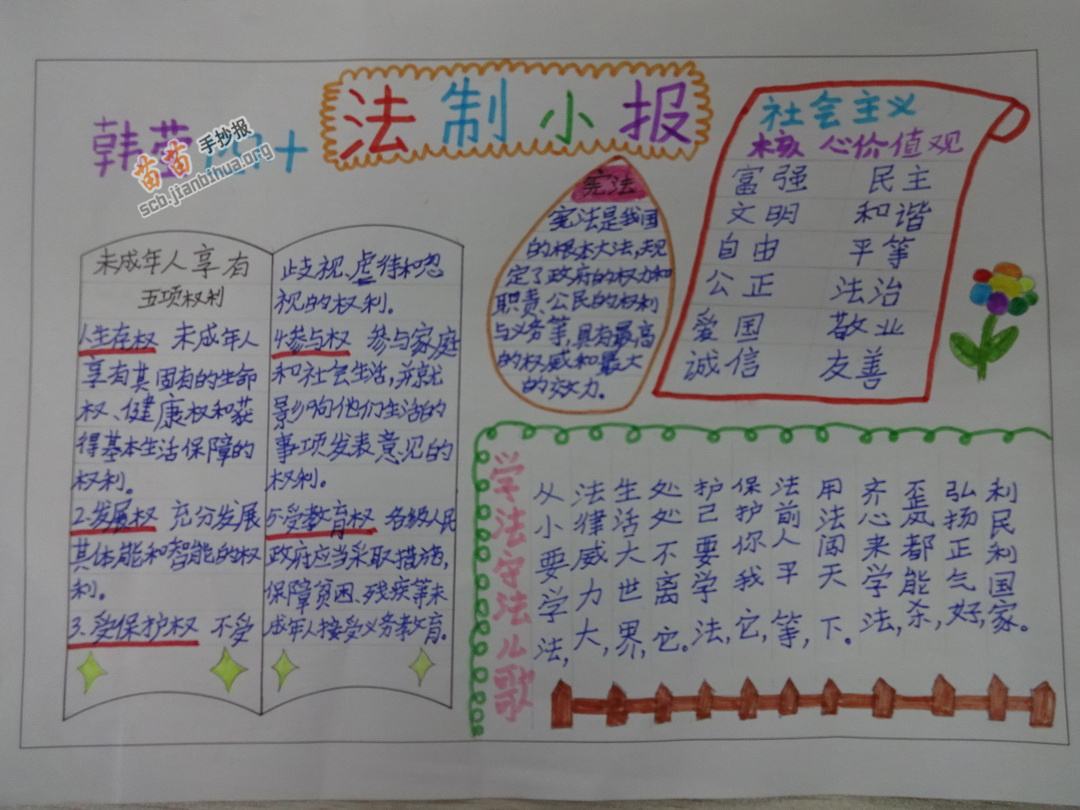 韩
法制小报
苗苗手抄报
scb.jianbihua.org
未成年人享有
五项权利
1.生存权 未成年人
享有其固有的生命
权、健康权和获
得基本生活保障的
权利。
2.发展权 充分发展
其体能和智能的权
利。
3.受保护权 不受
歧视、虐待和忽
视的权利。
4.参与权 参与家庭
和社会生活,并就
影响他们生活的
事项发表意见的
权利。
5.受教育权 各级人民
政府应当采取措施,
保障贫困、残疾等未
成年人接受义务教育。
宪法
宪法是我国
的根本大法,规
定了政府的权力和
职责、公民的权利
与义务等,具有最高
的权威和最大
的效力。
社会主义
核心价值观
富强 民主
文明 和谐
自由 平等
公正 法治
爱国 敬业
诚信 友善
学法守法儿歌
从小要学法,
法律威力大,
生活大世界,
处处不离它。
护己要学法,
保护你我它,
法前人平等,
用法闯天下。
齐心来学法,
歪风都能杀,
弘扬正气好,
利民利国家。